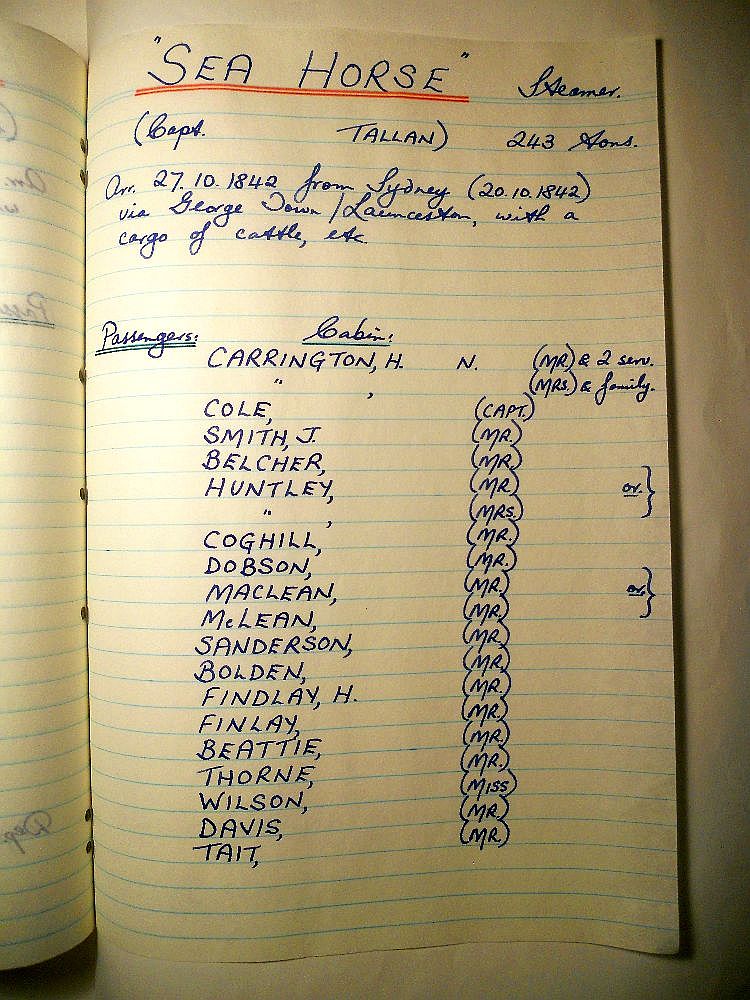 "SEA HORSE" Steamer.
(Capt. TALLAN) 243 tons.
Arr. 27.10.1842 from Sydney (20.10.1842)
via George Town / Launceston, with a
cargo of cattle, etc.
Passengers: Cabin:
CARRINGTON, H. N. (MR) & 2 serv.
" , (MRS.) & family.
COLE, (CAPT.)
SMITH, J. (MR.)
BELCHER, (MR.)
HUNTLEY, (MR.) or. }
" , (MRS.)
COGHILL, (MR.)
DOBSON, (MR.)
MACLEAN, (MR.) or. }
McLEAN, (MR.)
SANDERSON, (MR.)
BOLDEN, (MR.)
FINDLAY, H. (MR.)
FINLAY, (MR.)
BEATTIE, (MR.)
THORNE, (MR.)
WILSON, (MISS)
DAVIS, (MR.)
TAIT, (MR.)